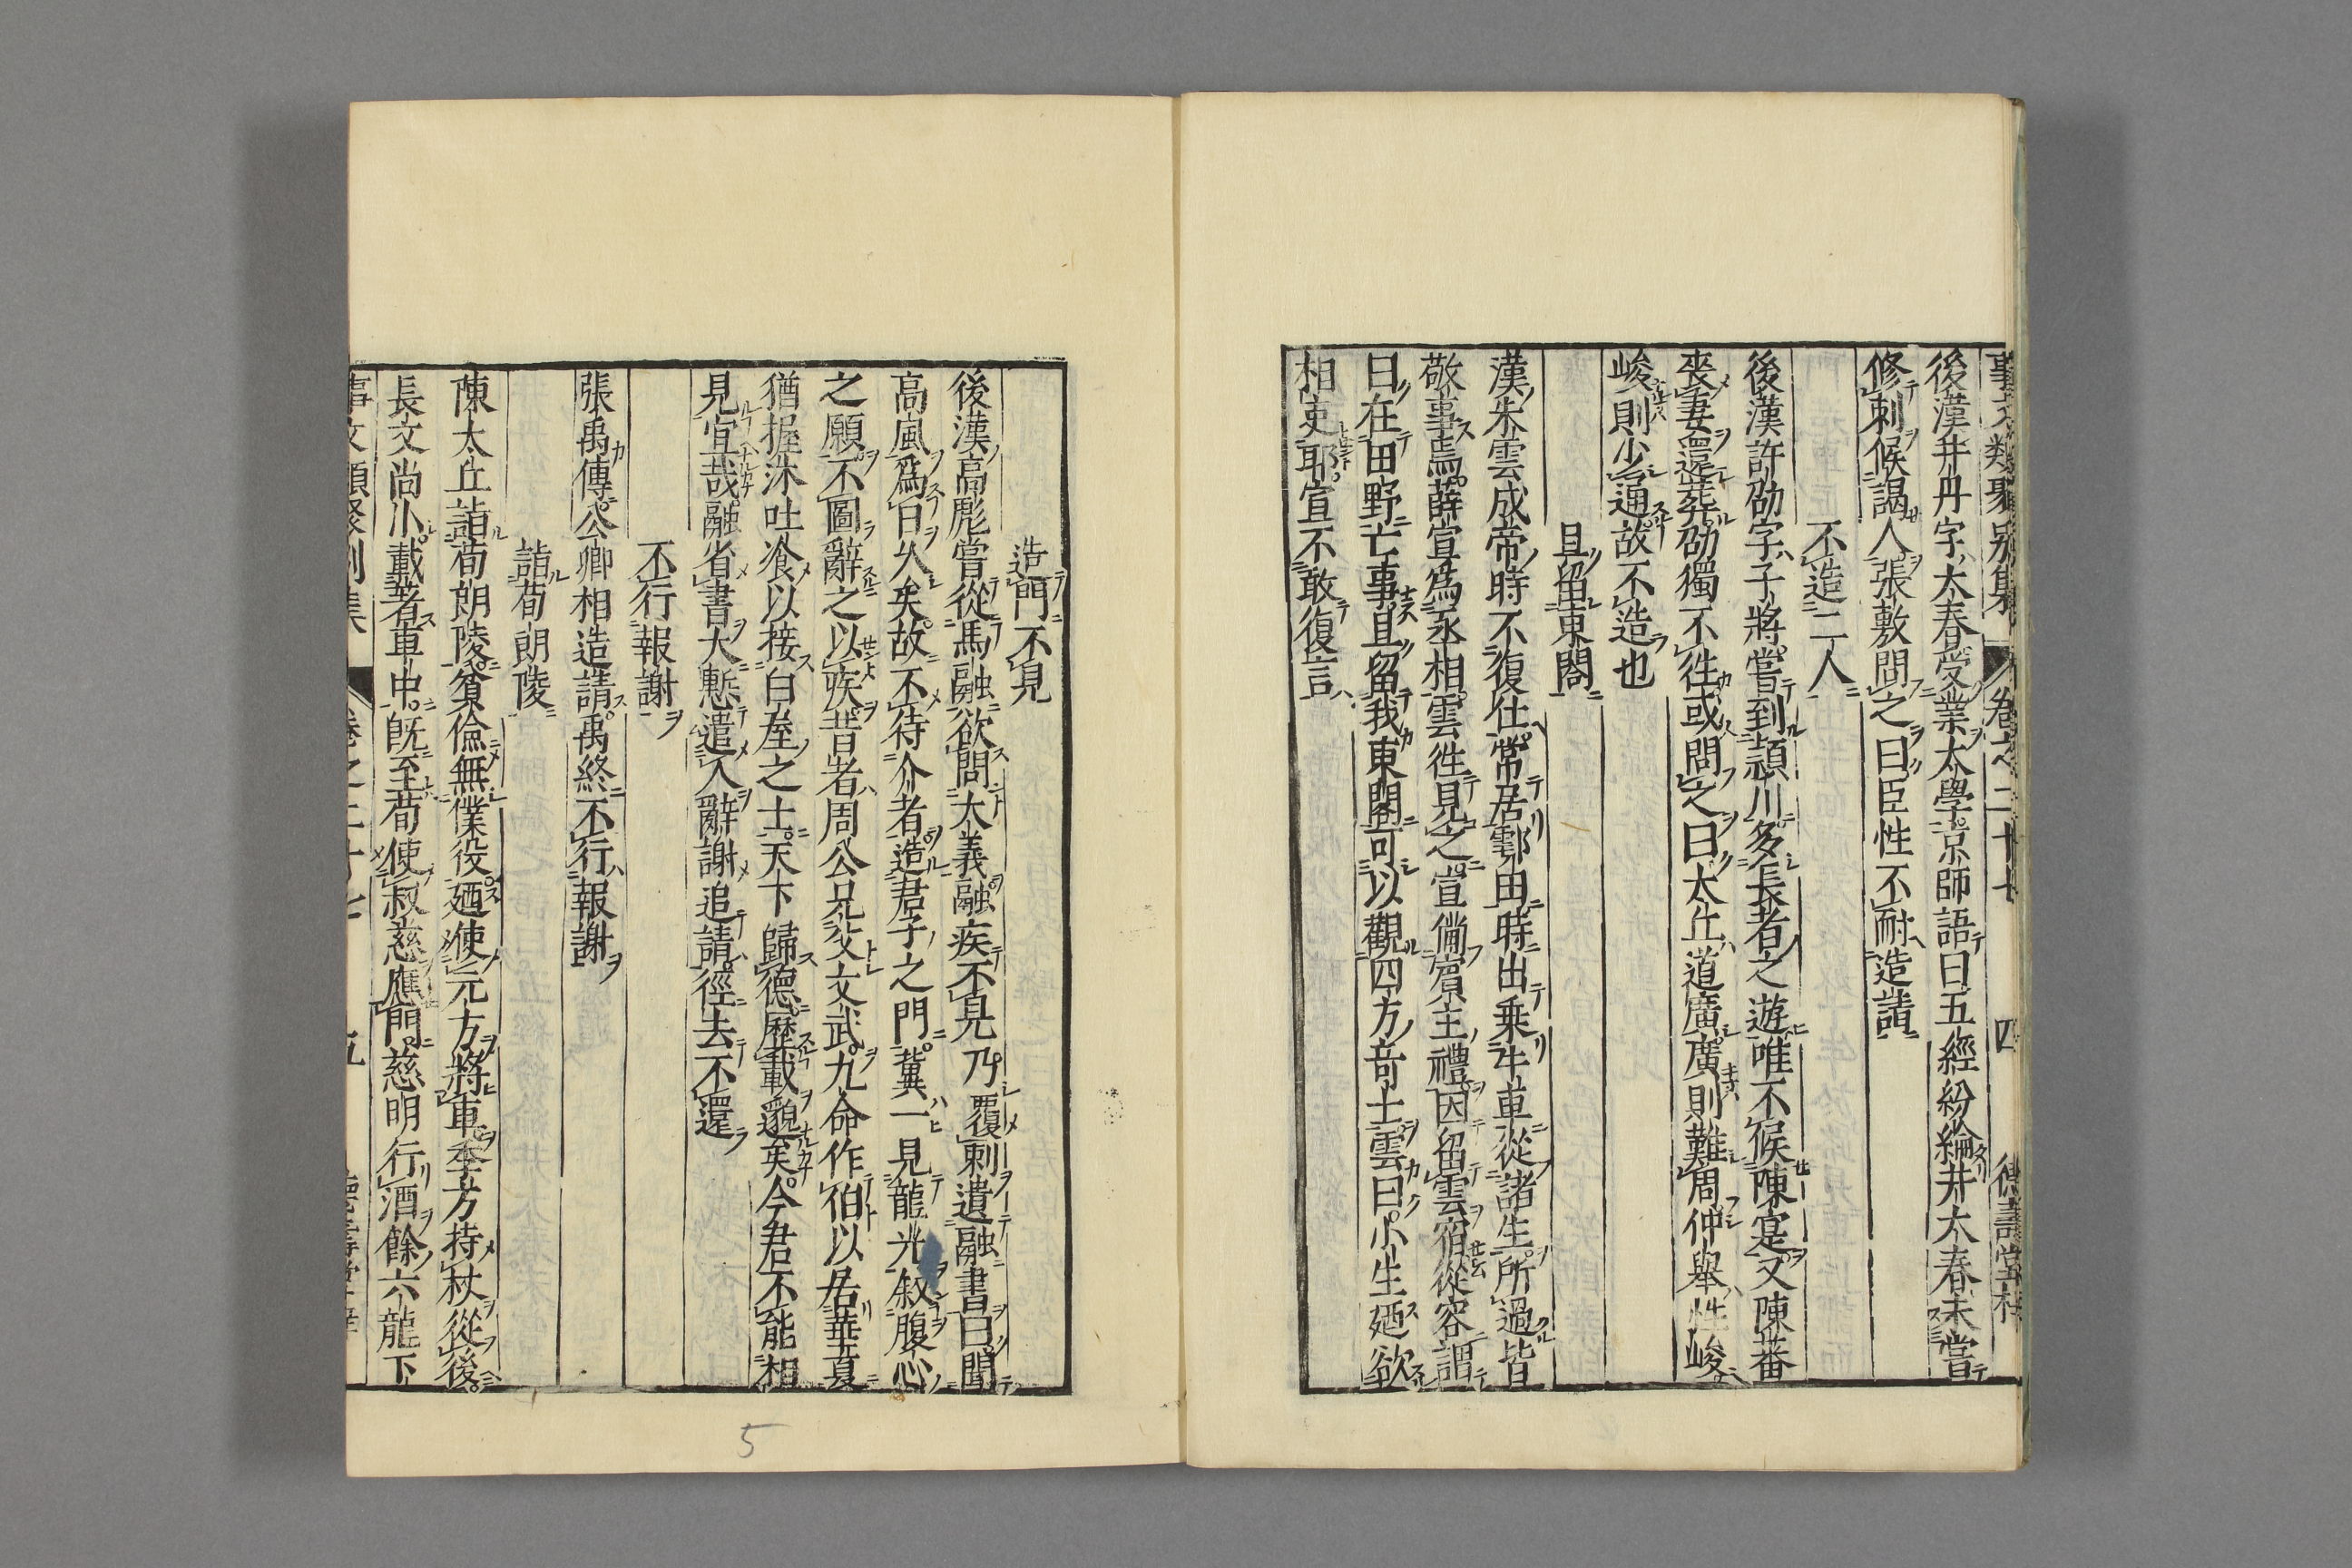 事文類聚別集 卷之二十七 四 德壽堂梓
後漢井丹字太春受業太學京師語曰五經紛綸井太春未嘗
修刺候謁人張敷問之曰臣性不耐造請
不造二人
後漢許劭字子將嘗到潁川多長者之遊唯不候陳寔又陳蕃
喪妻還葬劭獨不徃或問之曰太丘道廣廣則難周仲舉性峻
峻則少通故不造也
且留東閤
漢朱雲成帝時不復仕常居鄠田時出乗牛車從諸生所過皆
敬事焉薛宣爲丞相雲徃見之宣備賔主禮因留雲宿從容謂
曰在田野亡事且留我東閤可以觀四方竒士雲曰小生廼欲
相吏耶宣不敢復言
造門不見
後漢高彪嘗從馬融欲問大義融疾不見乃覆刺遺融書曰聞
高風爲日乆矣故不待介者造君子之門冀一見龍光叙腹心
之願不圖辭之以疾昔者周公兄父文武九命作伯以居華夏
猶握沐吐飡以接白屋之士天下歸德歷載邈矣今君不能相
見宜哉融省書大慙遣人辭謝追請徑去不還
不行報謝
張禹傳公卿相造請禹終不行報謝
詣荀朗陵
陳太丘詣荀朗陵貧儉無僕役廼使元方將車季方持杖從後
長文尚小載著車中旣至荀使叔慈應門慈明行酒餘六龍下
事文類聚別集 卷之二十七 五 德壽堂梓
5